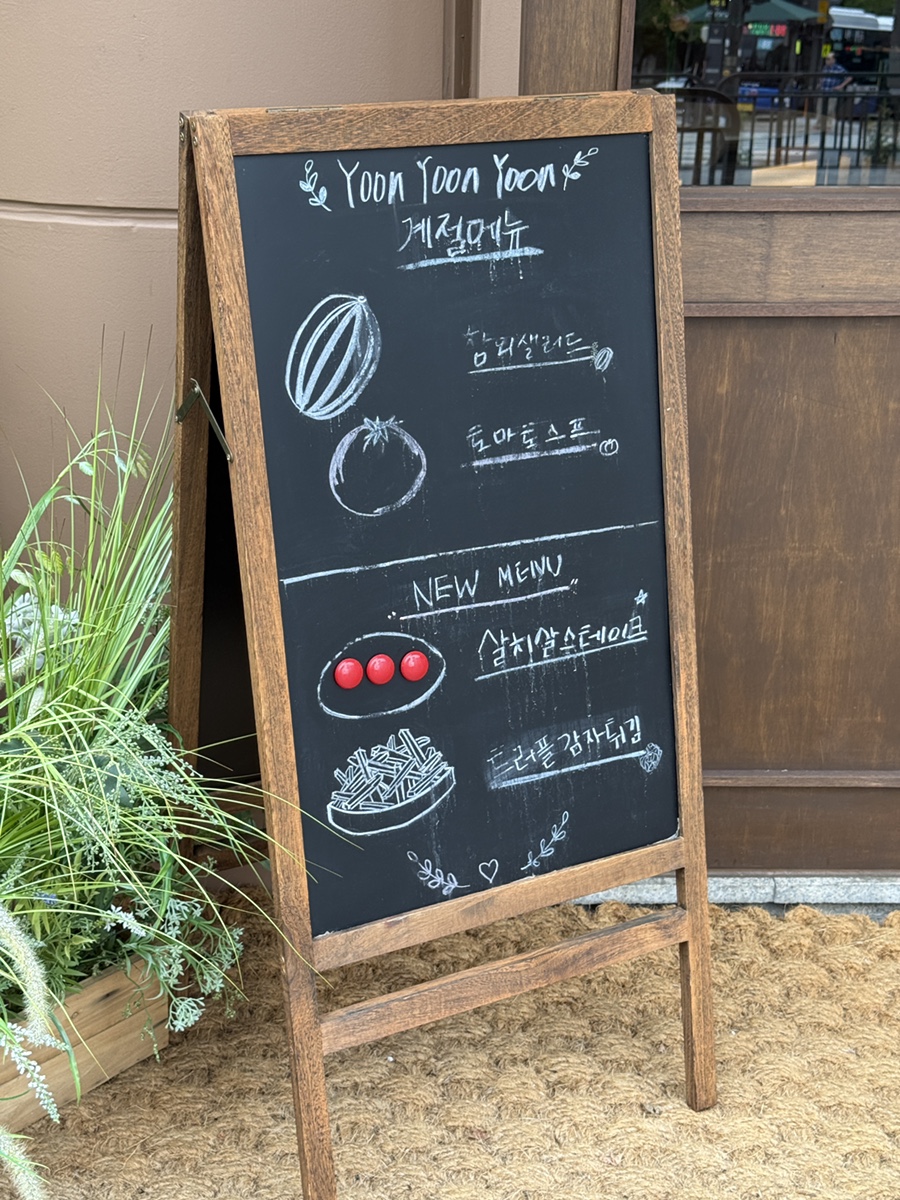 Yoon Yoon Yoon
계절메뉴
참외샐러드
토마토스프
"NEW MENU"
살치살스테이크
트러플감자튀김